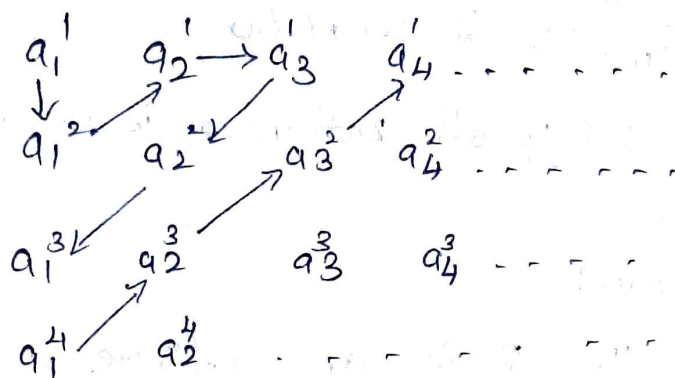 a₁¹ a₂¹ → a₃¹ a₄¹ . . . . . . .
a₁² a₂² a₃² a₄² . . . . . . .
a₁³ a₂³ a₃³ a₄³ . . . . .
a₁⁴ a₂⁴ . . . . . . . .